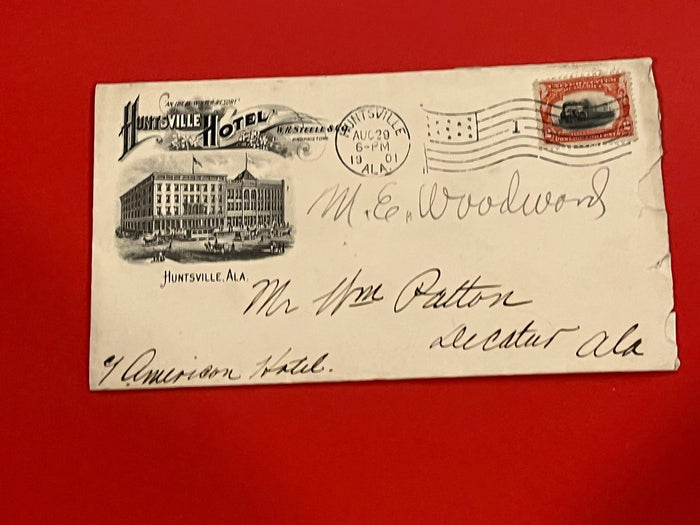 "AN IDEAL WINTER RESORT"
HUNTSVILLE HOTEL
W.H. STEELE & CO.
PROPRIETORS
HUNTSVILLE, ALA.
HUNTSVILLE
AUG 29
6-PM
19 01
ALA.
1
2 2
M. E. Woodword
Mr Wm Patton
Decatur Ala
c/ American Hotel.